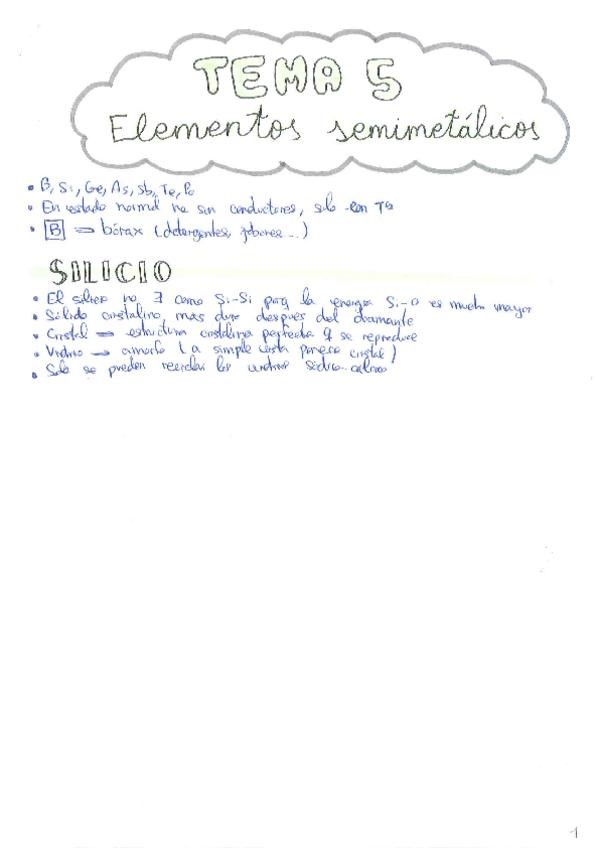 TEMA 5
Elementos semimetálicos
• B, Si, Ge, As, Sb, Te, Po
• En estado normal no son conductores, solo con Tª
• B ⇒ bórax (detergentes, jabones...)
SILICIO
• El silicio no ∃ como Si-Si porq la energía Si-O es mucha mayor
• Sólido cristalino, mas duro despues del diamante
• Cristal ⇒ estructura cristalina perfecta q se reproduce
• Vidrio → amorfo (a simple vista parece cristal)
• Solo se pueden reciclar los vidrios sódico-cálcico
1